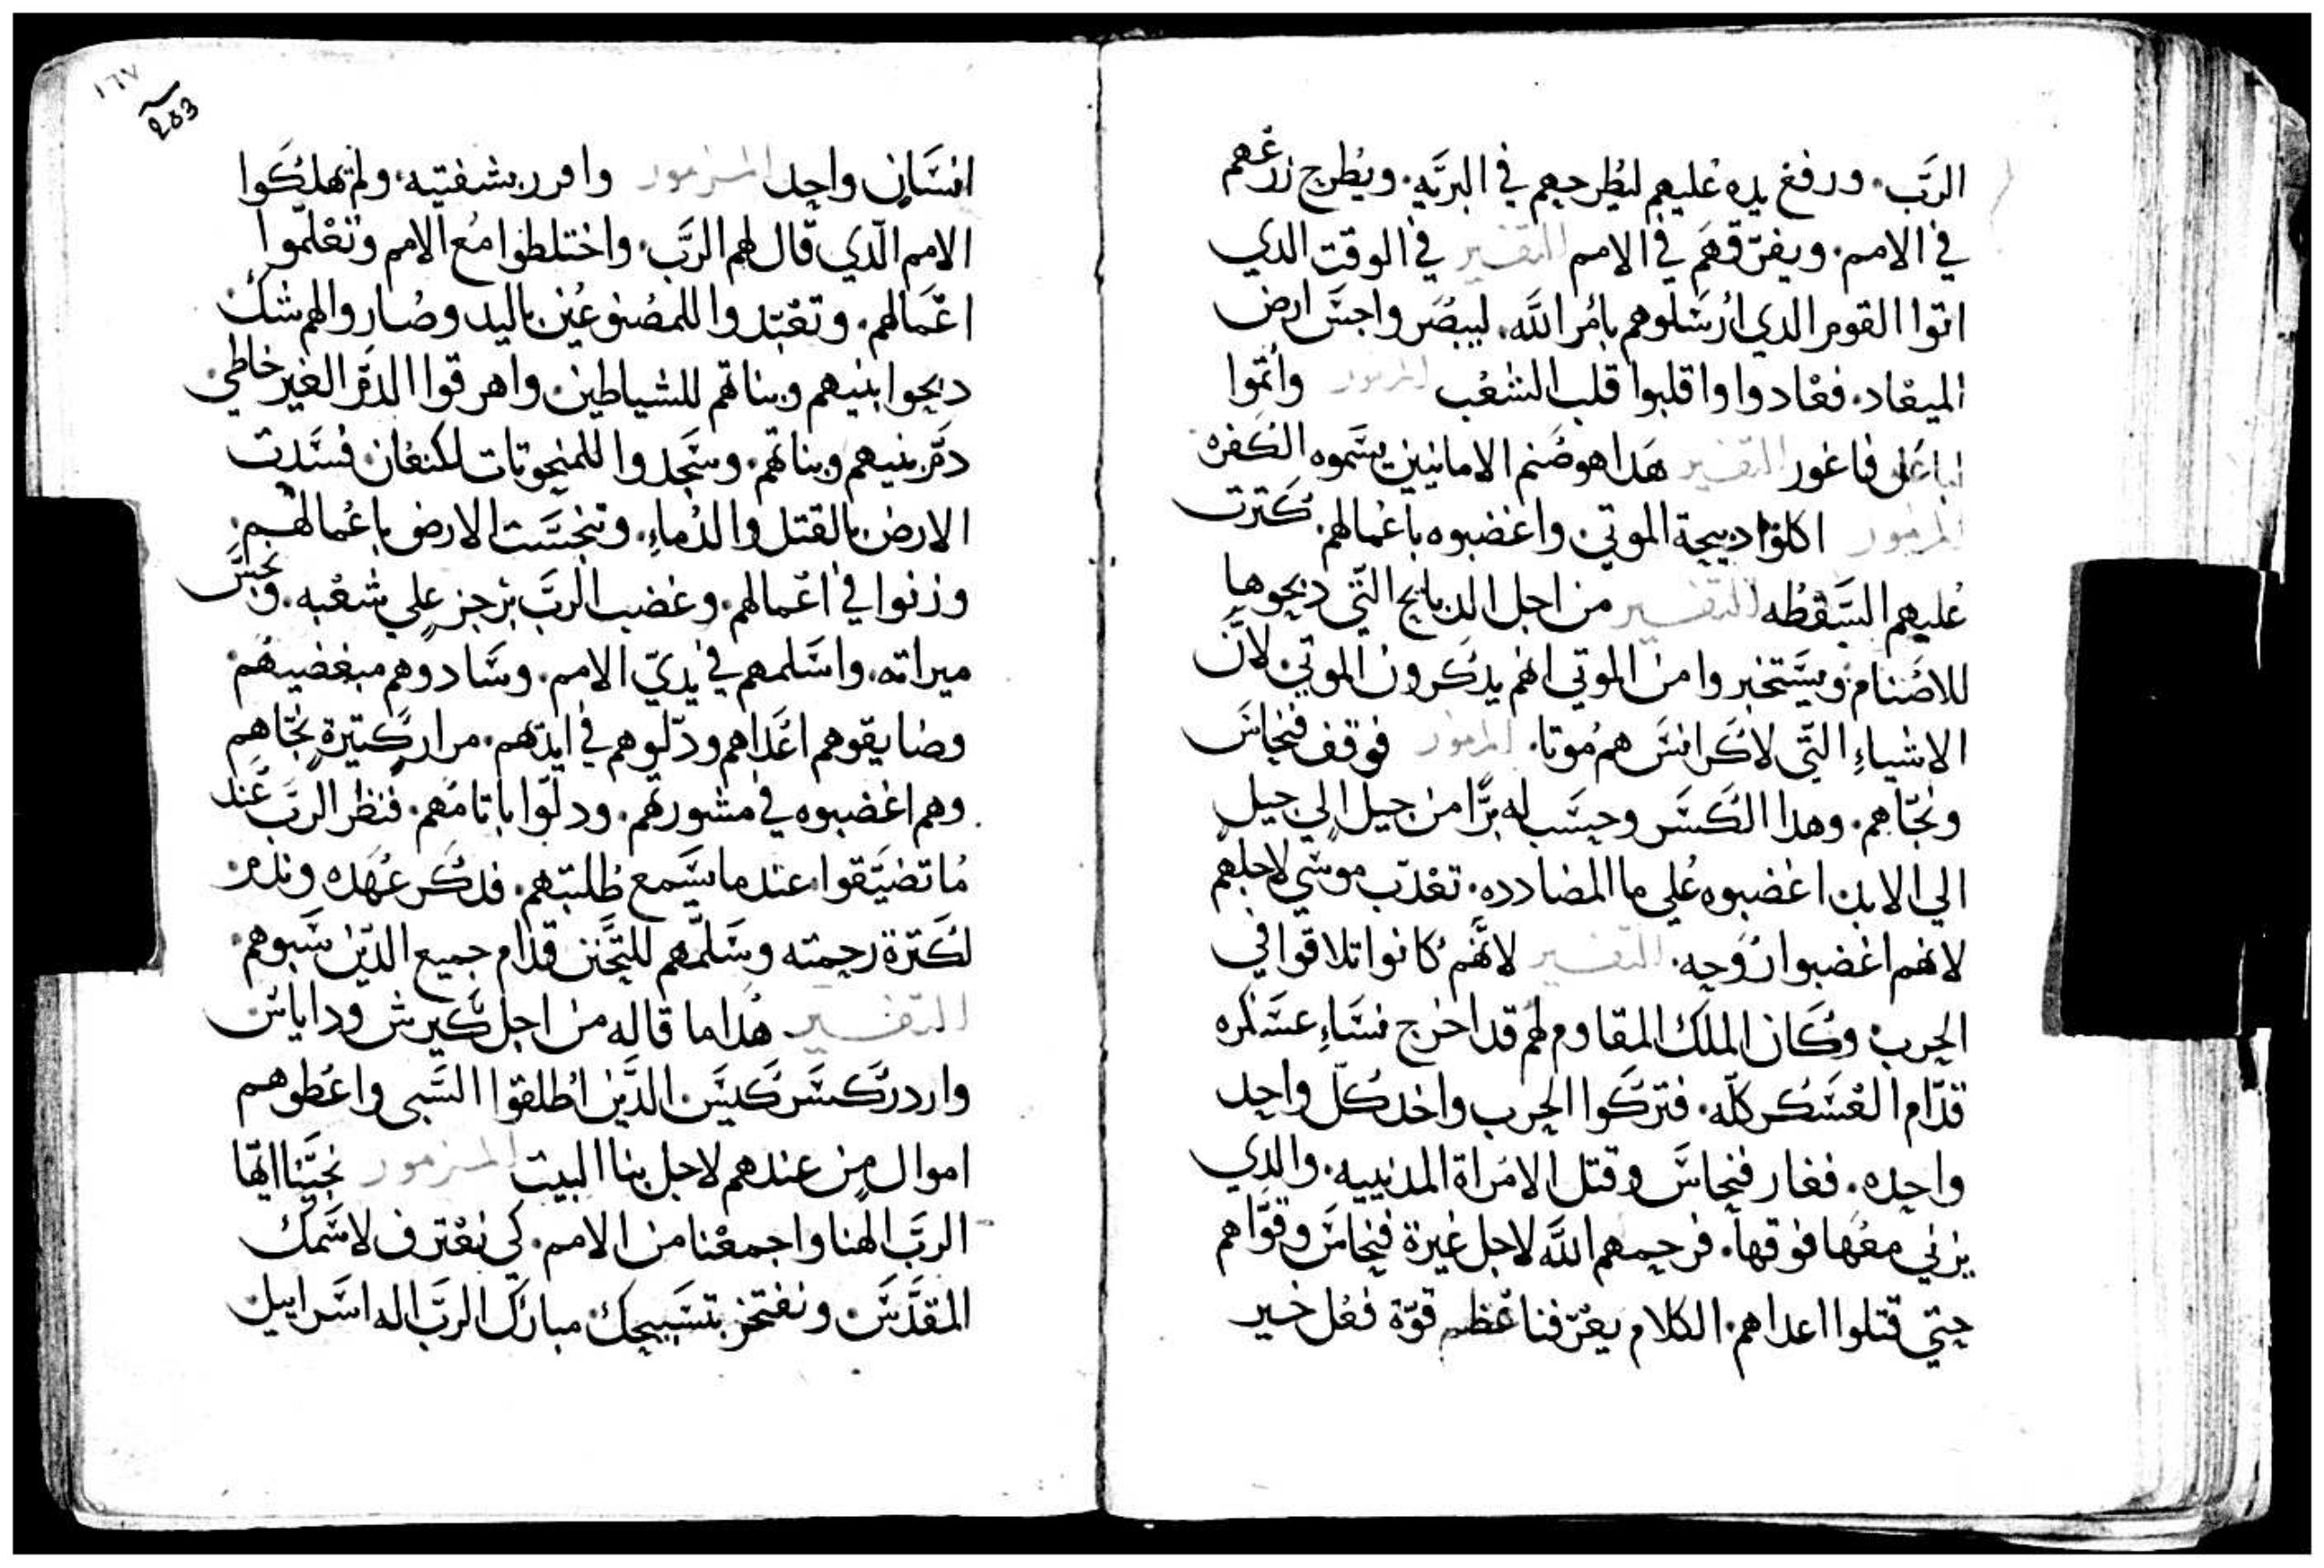 الرَّب. ورفع يده عليهم ليُطرحهم في البريّه. ويُطرح زرعهم
في الامم. ويفرّقهم في الامم التفسير في الوقت الدي
اتوا القوم الدي ارسلوهم بامر الله. ليبصروا جسّ ارض
الميعاد. فعادوا واقلبوا قلب الشعب المزمور واتموا
لباعل فاغور التفسير هدا هو صنم الامانيين يسموه الكفره
المزمور اكلوا دبيحة الموتي واغضبوه باعمالهم. كترت
عليهم السقطه التفسير من اجل الدبايح التي دبحوها
للاصنام ويستخبروا من الموتي انهم يدكرون الموتي لان
الاشياء التي لا كرانس هم موتا. المزمور فوقف فنحاس
ونجّاهم. وهدا الكسر وحسب له برًا من جيل الي جيل
الي الابد اغضبوه علي ما المضادده. تعدب موسي لاجلهم
لانهم اغضبوا روحه. التفسير لانّهم كانوا تلاقوا في
الحرب وكان الملك المقاوم لهم قد اخرج نساء عسكره
قدّام العسكر كلّه. فتركوا الحرب واخد كلّ واحد
واحده. فغار فنحاس وقتل الامراة المدنييه. والدي
يزني معها فوقها. فرحمهم الله لاجل غيرة فنحاس وقوّاهم
حتي قتلوا اعداهم. الكلام يعرّفنا عظم قوّة فعل خير
١٦٧
203
انسان واحد المزمور وافرز بشفتيه. ولم يهلكوا
الامم الّدي قال لهم الرَّب. واختلطوا مع الامم وتعلّموا
اعمالهم. وتعبّدوا للمصنوعين باليد وصاروا لهم شك
دبحوا بنيهم وبناتهم للشياطين. واهرقوا الدم الغير خاطي.
دم بنيهم وبناتهم. وسجدوا للمنحوتات لكنعان. فسدت
الارض بالقتل والدماء. وتنجست الارض باعمالهم.
وزنوا في اعمالهم. وغضب الرَّب برجز علي شعبه. ونجس
ميراته. واسلمهم في يديّ الامم. وسادوهم مبغضيهم
وضايقوهم اعداهم ودلّوهم في ايديهم. مرار كتيرة نجّاهم
وهم اغضبوه في مشورتهم. ودلّوا باتامهم. فنظر الرَّب عند
ما تضيّقوا. عندما يسمع طلبتهم. فدكر عهده وندم
لكترة رحمته وسلّمهم للتحنن قدام جميع الدّين سبوهم.
التفسير هدا ما قاله من اجل كيرش وداياس
واردركسركسيس الدّين اطلقوا السبي واعطوهم
اموال من عندهم لاجل بنا البيت المزمور نجيّنا ايّها
الربّ الهنا واجمعنا من الامم. كي نعترف لاسمك
المقدّس ونفتخر بتسبيحك. مبارك الربّ اله اسراييل